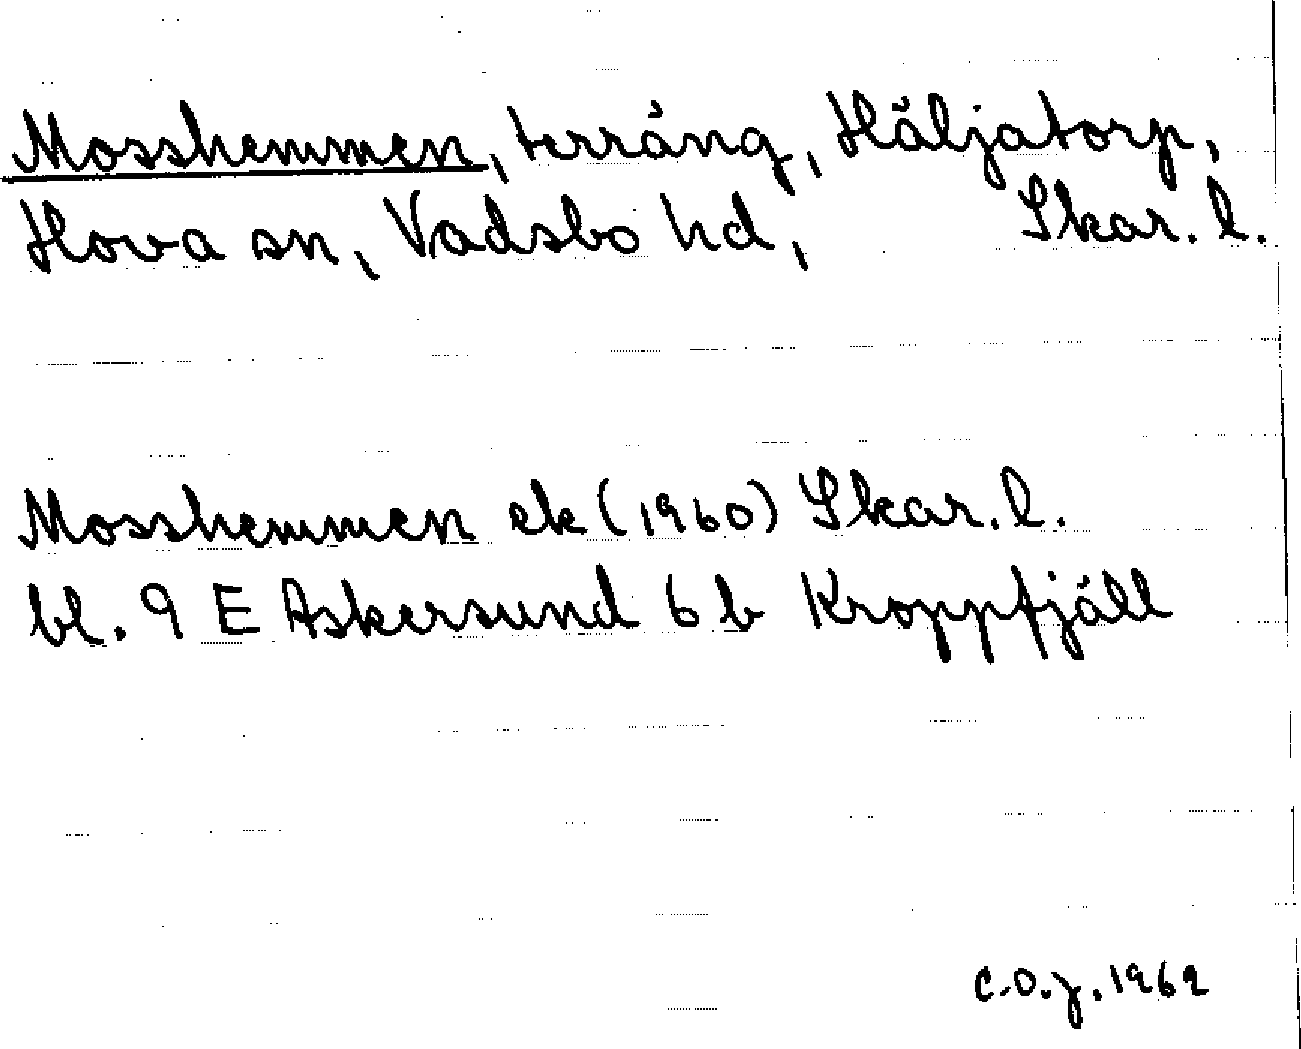 Mosshemmen, terräng, Häljatorp,
Hova sn, Vadsbo hd, Skar. l.
Mosshemmen ek (1960) Skar. l.
bl. 9 E Askersund 6 b Kroppfjäll
C.O.J. 1962